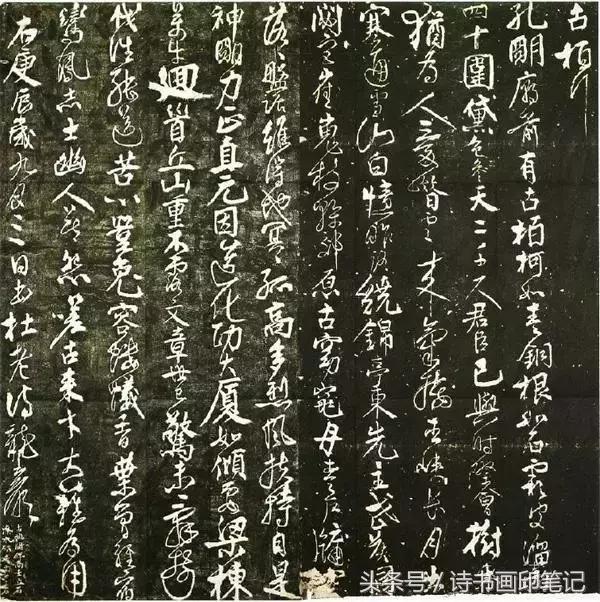 古柏行
孔明廟前有古柏柯如青銅根如石霜皮溜雨
四十圍黛色參天二千尺君臣已與時際會樹木
猶為人愛惜雲來氣接巫峽長月出
寒通雪山白憶昨路繞錦亭東先主武侯同
閟宮崔嵬枝幹郊原古窈窕丹青戶牖空
落落盤踞雖得地冥冥孤高多烈風扶持自是
神明力正直元因造化功大廈如傾要梁棟
萬牛迴首丘山重不露文章世已驚未辭剪
伐誰能送苦心豈免容螻蟻香葉曾經宿
鸞鳳志士幽人莫怨嗟古來材大難為用
右庚辰歲九月三日書杜老詩龍巖
头条号 / 诗书画印笔记